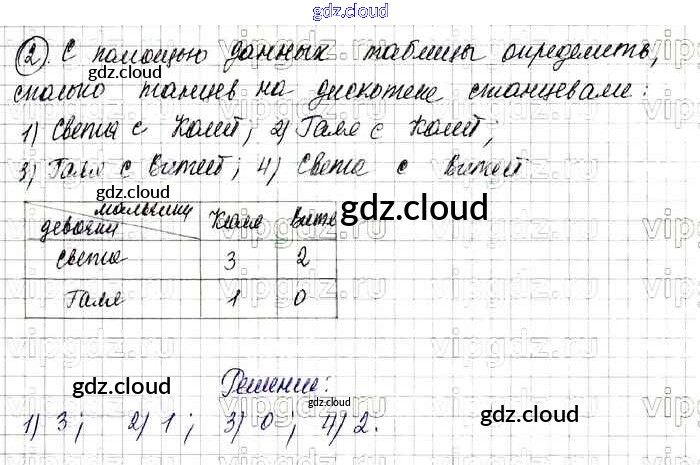 gdz.cloud
② С помощью данных таблицы определить,
gdz.cloud
сколько танцев на дискотеке станцевали:
1) Света с Колей; 2) Галя с Колей;
3) Галя с Витей; 4) Света с Витей
gdz.cloud
gdz.cloud
мальчики Коля Витя
девочки
gdz.cloud
Света 3 2
Галя 1 0
vipgdz.ru
Решение:
gdz.cloud
gdz.cloud
gdz.cloud
1) 3; 2) 1; 3) 0; 4) 2.